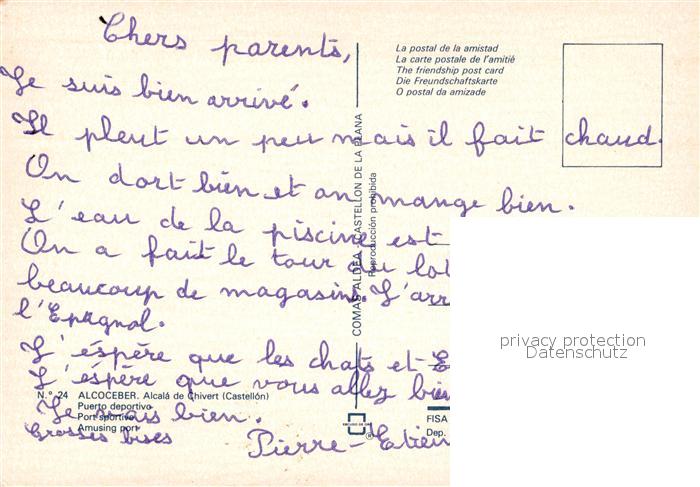 Chers parents,
Je suis bien arrivé.
Il pleut un peu mais il fait chaud.
On dort bien et on mange bien.
L'eau de la piscine est
On a fait le tour du lot
beaucoup de magasin. J'arr
l'Epagnol.
J'éspère que les chats et
J'éspère que vous allez bien
Je vais bien.
Grosses bises
Pierre-Etien
La postal de la amistad
La carte postale de l'amitié
The friendship post card
Die Freundschaftskarte
O postal da amizade
COMAS ALDEA - CASTELLON DE LA PLANA
Reproducción prohibida
N.º 24 ALCOCEBER. Alcalá de Chivert (Castellón)
Puerto deportivo
Port sportive
Amusing port
®
FISA
Dep.
privacy protection
Datenschutz